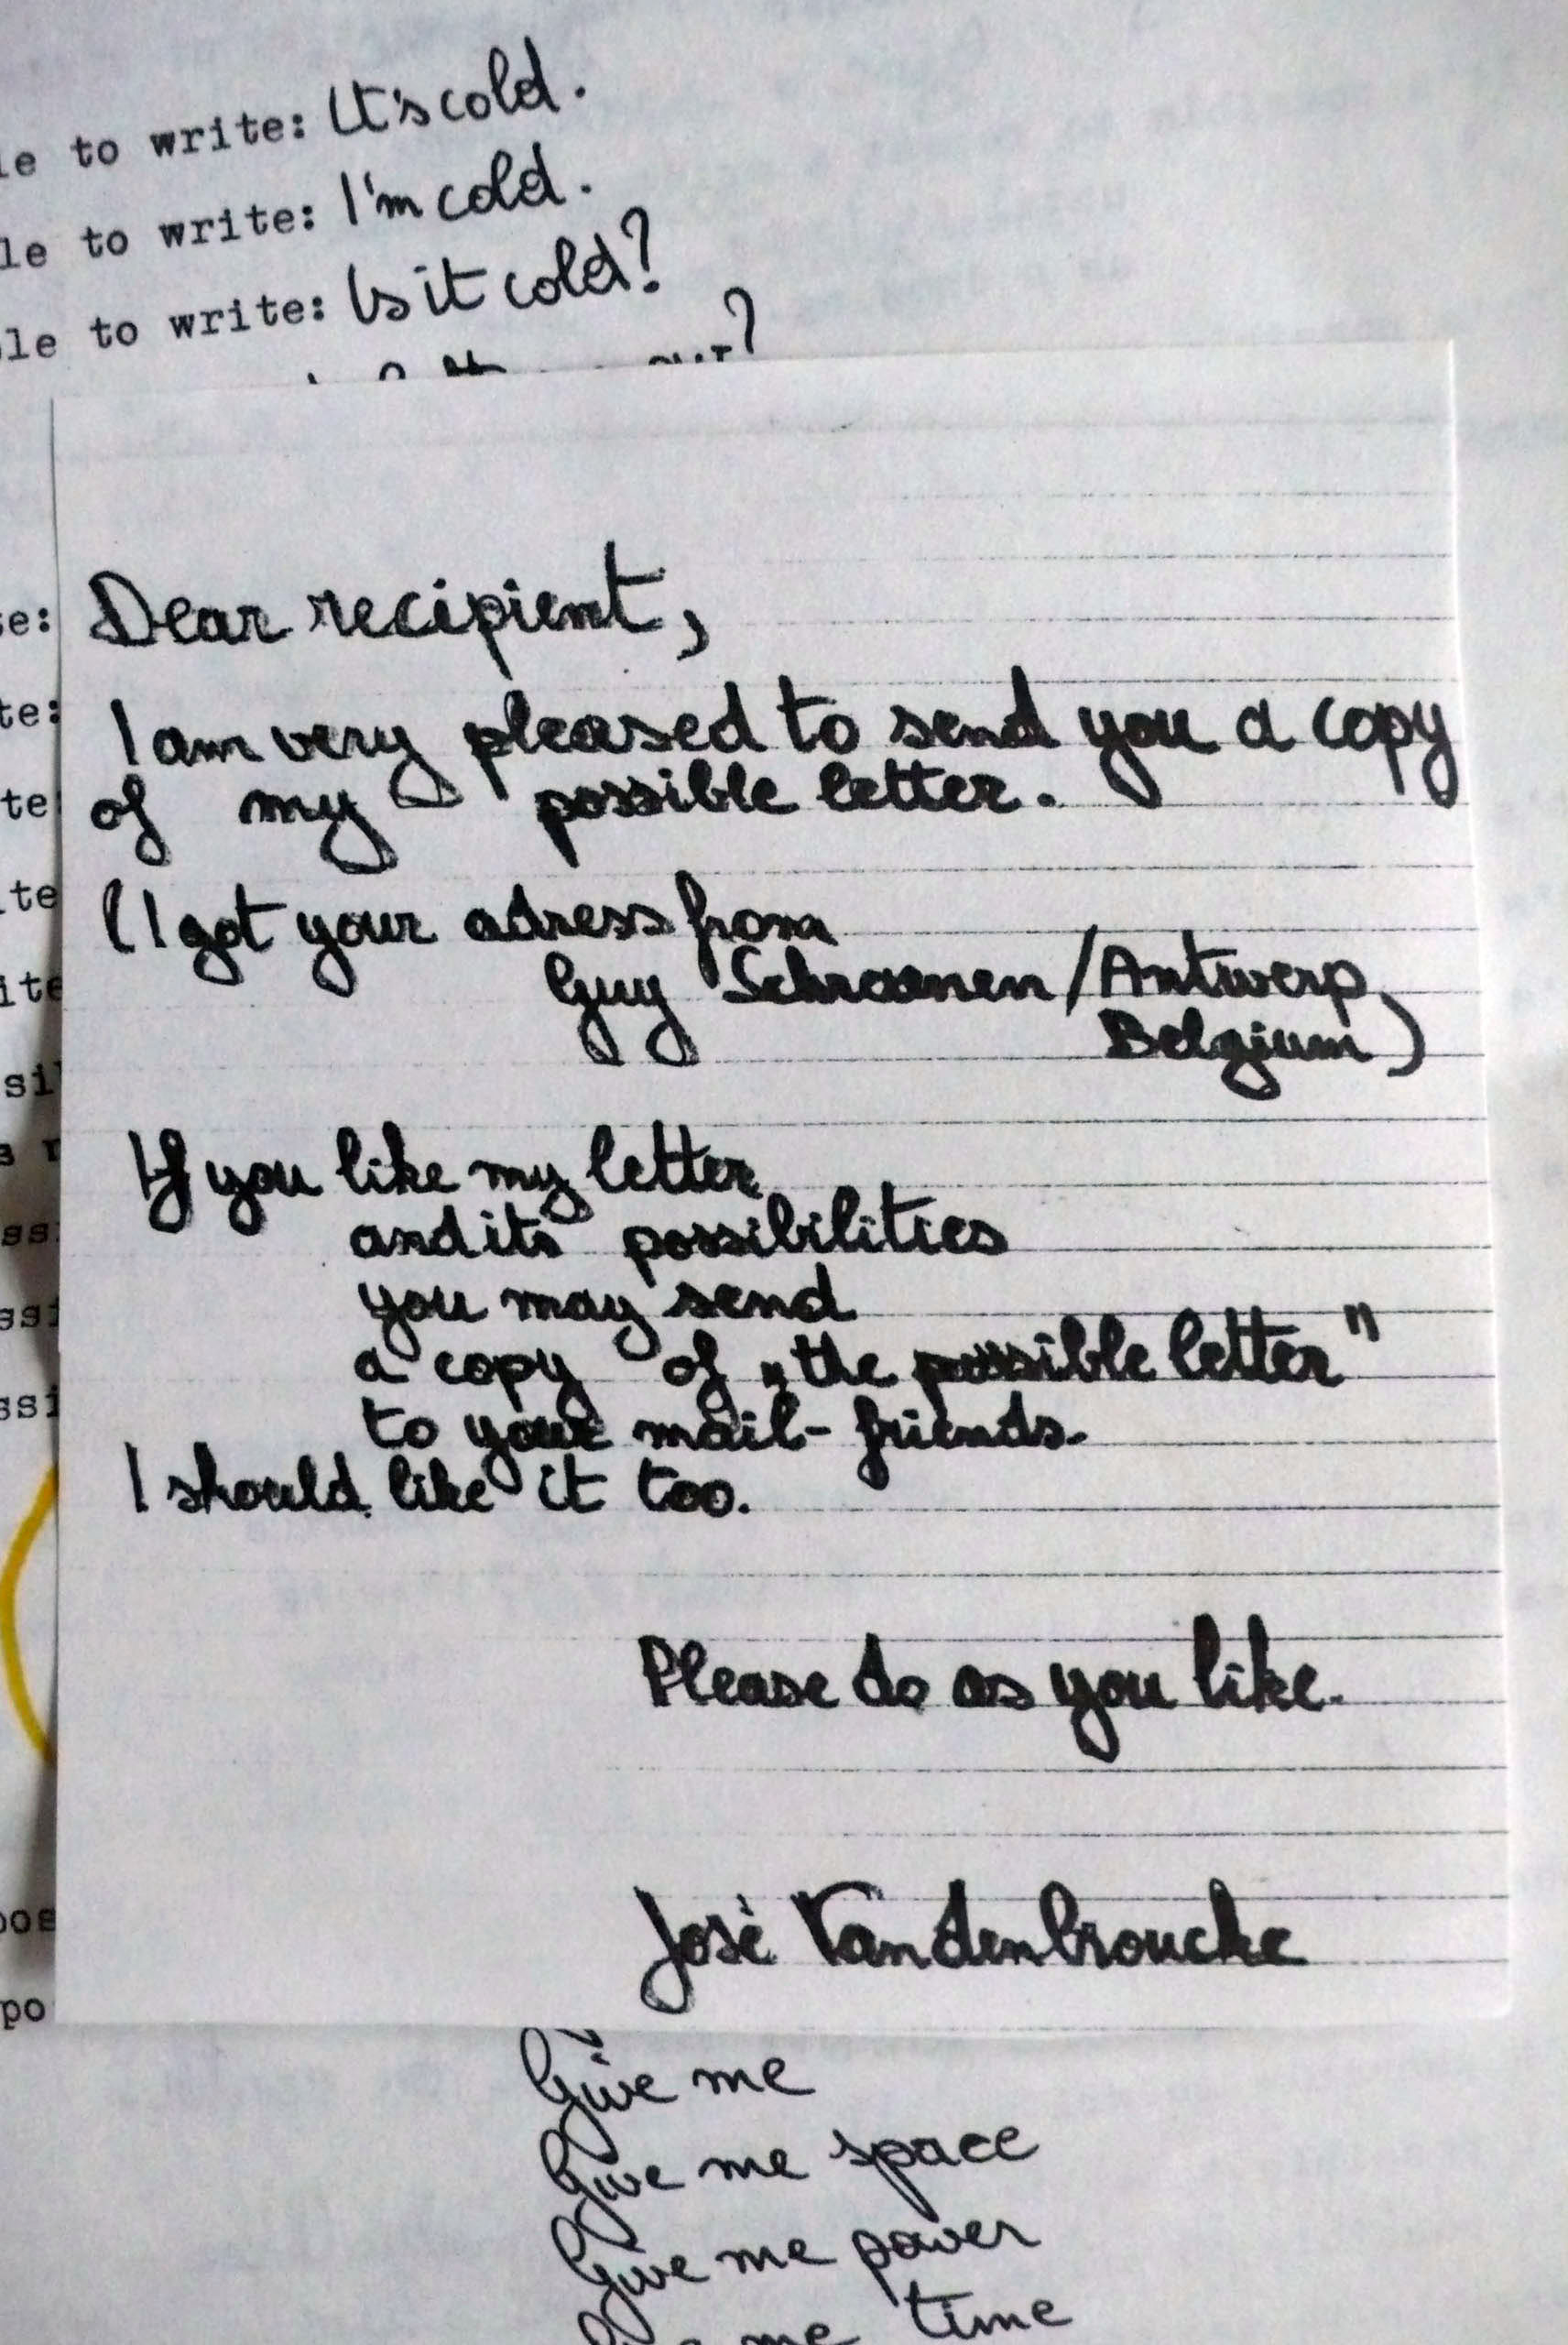 le to write: It's cold.
le to write: I'm cold.
le to write: Is it cold?
?
te:
te:
te
ite
ite
ssi
ssi
ssi
pos
po
Dear recipient,
I am very pleased to send you a copy
of my possible letter.
(I got your adress from
Guy Schraenen/Antwerp
Belgium)
If you like my letter
and its possibilities
you may send
a copy of „the possible letter"
to your mail-friends.
I should like it too.
Please do as you like.
José Vandenbroucke
Give me
Give me space
Give me power
me time